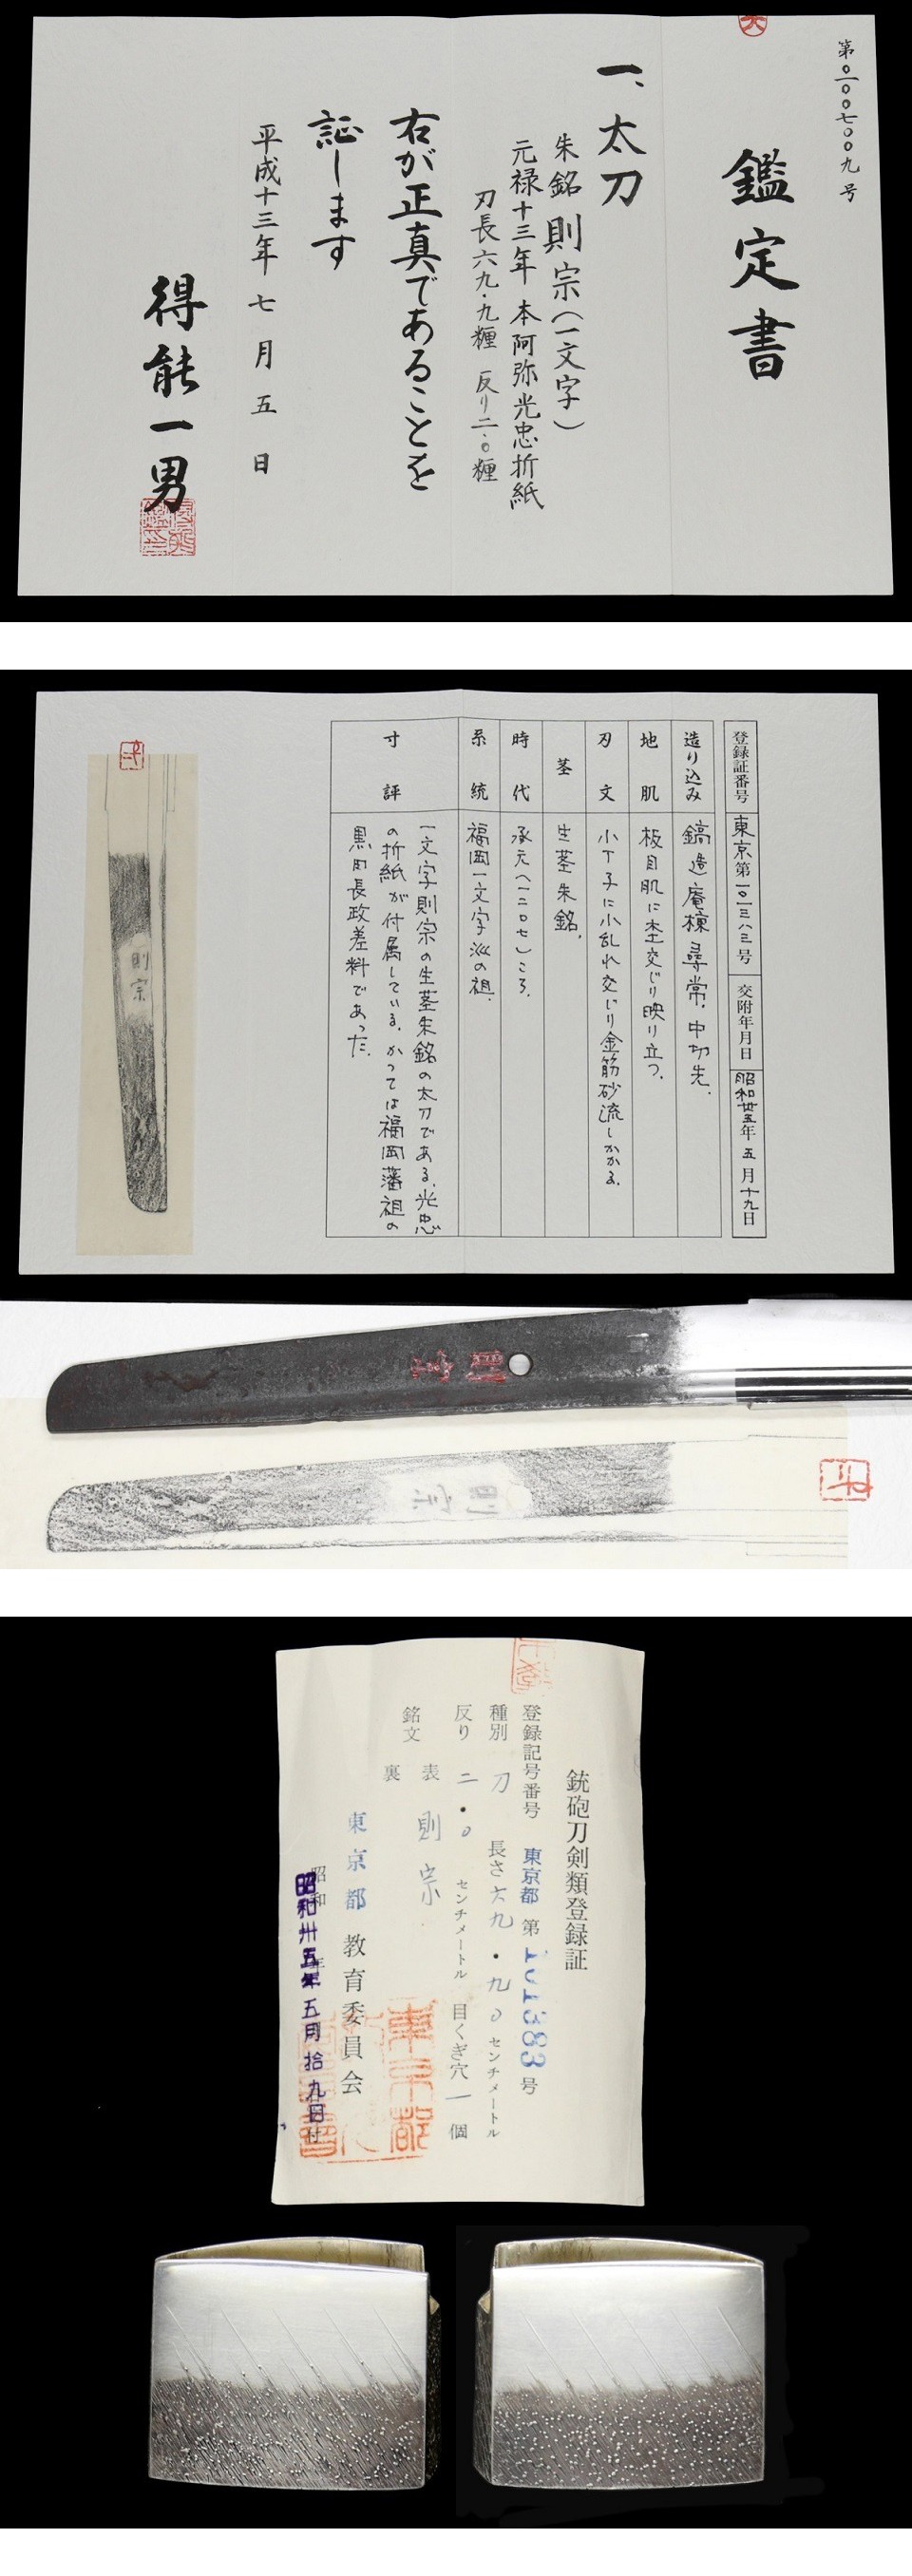 第〇一〇〇七〇〇九号
鑑定書
一、太刀
朱銘 則宗(一文字)
元禄十三年 本阿弥光忠折紙
刃長六九・九糎 反り二・〇糎
右が正真であることを
証します
平成十三年 七月 五日
得能一男
登録証番号 東京第一〇一三八三号 交附年月日 昭和卅五年五月十九日
造り込み 鎬造庵棟尋常,中切先.
地肌 板目肌に杢交じり映り立つ.
刃文 小丁子に小乱れ交じり金筋砂流しかかる.
茎 生茎朱銘.
時代 承元(一二〇七)ころ.
系統 福岡一文字派の祖.
寸評 一文字則宗の生茎朱銘の太刀である.光忠
の折紙が付属している.かつては福岡藩祖の
黒田長政差料であった.
則宗
則宗
則宗
銃砲刀剣類登録証
登録記号番号 東京都 第101383号
種別 刀 長さ六九・九〇センチメートル
反り 二・〇センチメートル 目くぎ穴 一個
銘文 表 則宗
裏
東京都教育委員会
昭和卅五年五月拾九日付